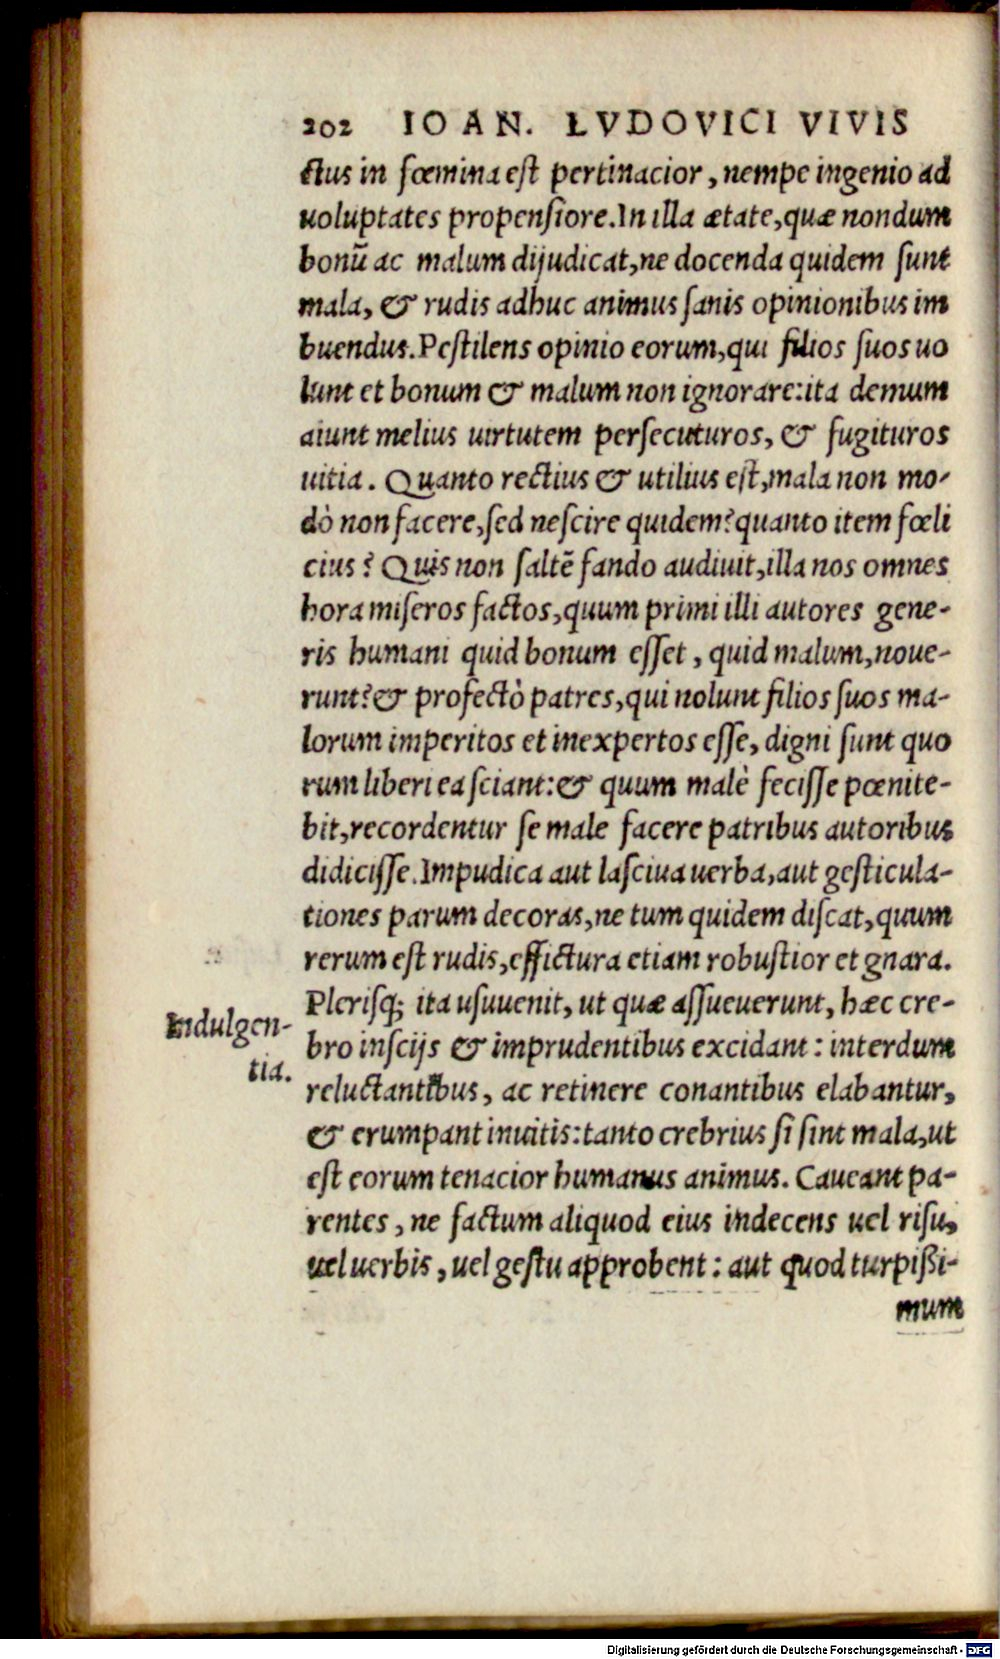 202 IOAN. LVDOVICI VIVIS
ctus in fœmina est pertinacior, nempe ingenio ad
uoluptates propensiore. In illa ætate, quæ nondum
bonū ac malum dijudicat, ne docenda quidem sunt
mala, & rudis adhuc animus sanis opinionibus im
buendus. Pestilens opinio eorum, qui filios suos uo
lunt et bonum & malum non ignorare: ita demum
aiunt melius uirtutem persecuturos, & fugituros
uitia. Quanto rectius & utilius est, mala non mo-
dò non facere, sed nescire quidem? quanto item fœli
cius? Quis non saltē fando audiuit, illa nos omnes
hora miseros factos, quum primi illi autores gene-
ris humani quid bonum esset, quid malum, noue-
runt? & profectò patres, qui nolunt filios suos ma-
lorum imperitos et inexpertos esse, digni sunt quo
rum liberi ea sciant: & quum malè fecisse pœnite-
bit, recordentur se male facere patribus autoribus
didicisse. Impudica aut lasciua uerba, aut gesticula-
tiones parum decoras, ne tum quidem discat, quum
rerum est rudis, effictura etiam robustior et gnara.
Plerisq; ita usuuenit, ut quæ assueuerunt, hæc cre-
bro inscijs & imprudentibus excidant: interdum
reluctantibus, ac retinere conantibus elabantur,
& erumpant inuitis: tanto crebrius si sint mala, ut
est eorum tenacior humanus animus. Caueant pa-
rentes, ne factum aliquod eius indecens uel risu,
uel uerbis, uel gestu approbent: aut quod turpißi-
mum
Indulgen-
tia.
Digitalisierung gefördert durch die Deutsche Forschungsgemeinschaft - DFG